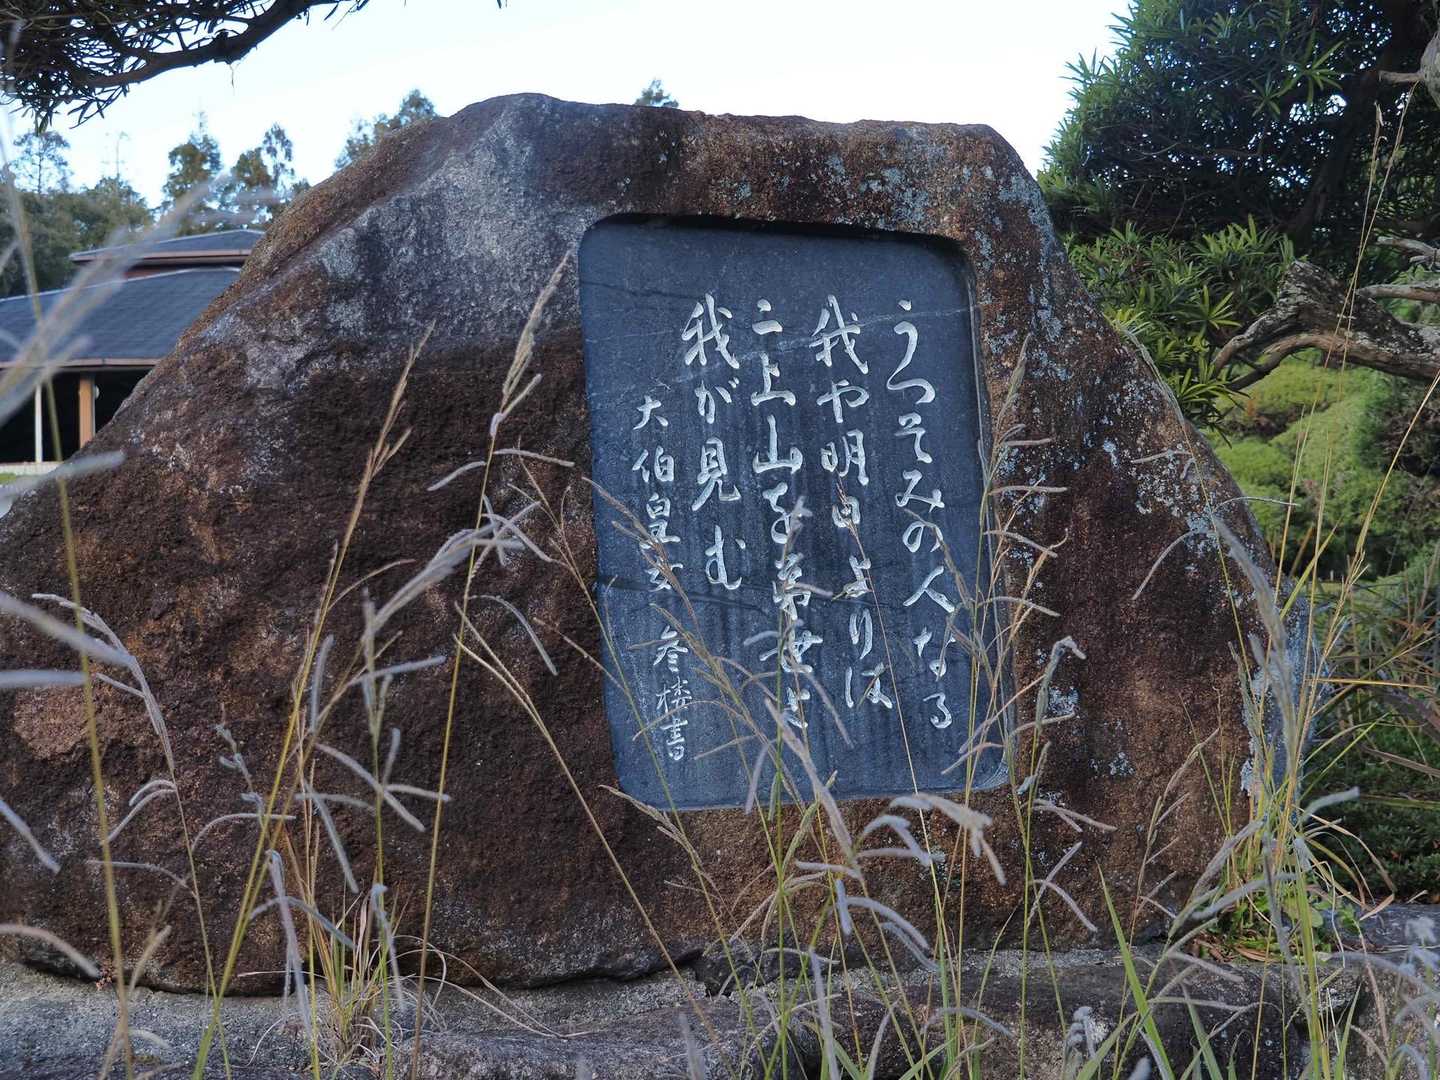 うつそみの人なる
我や明日よりは
二上山を弟世と
我が見む
大伯皇女 孝楼書